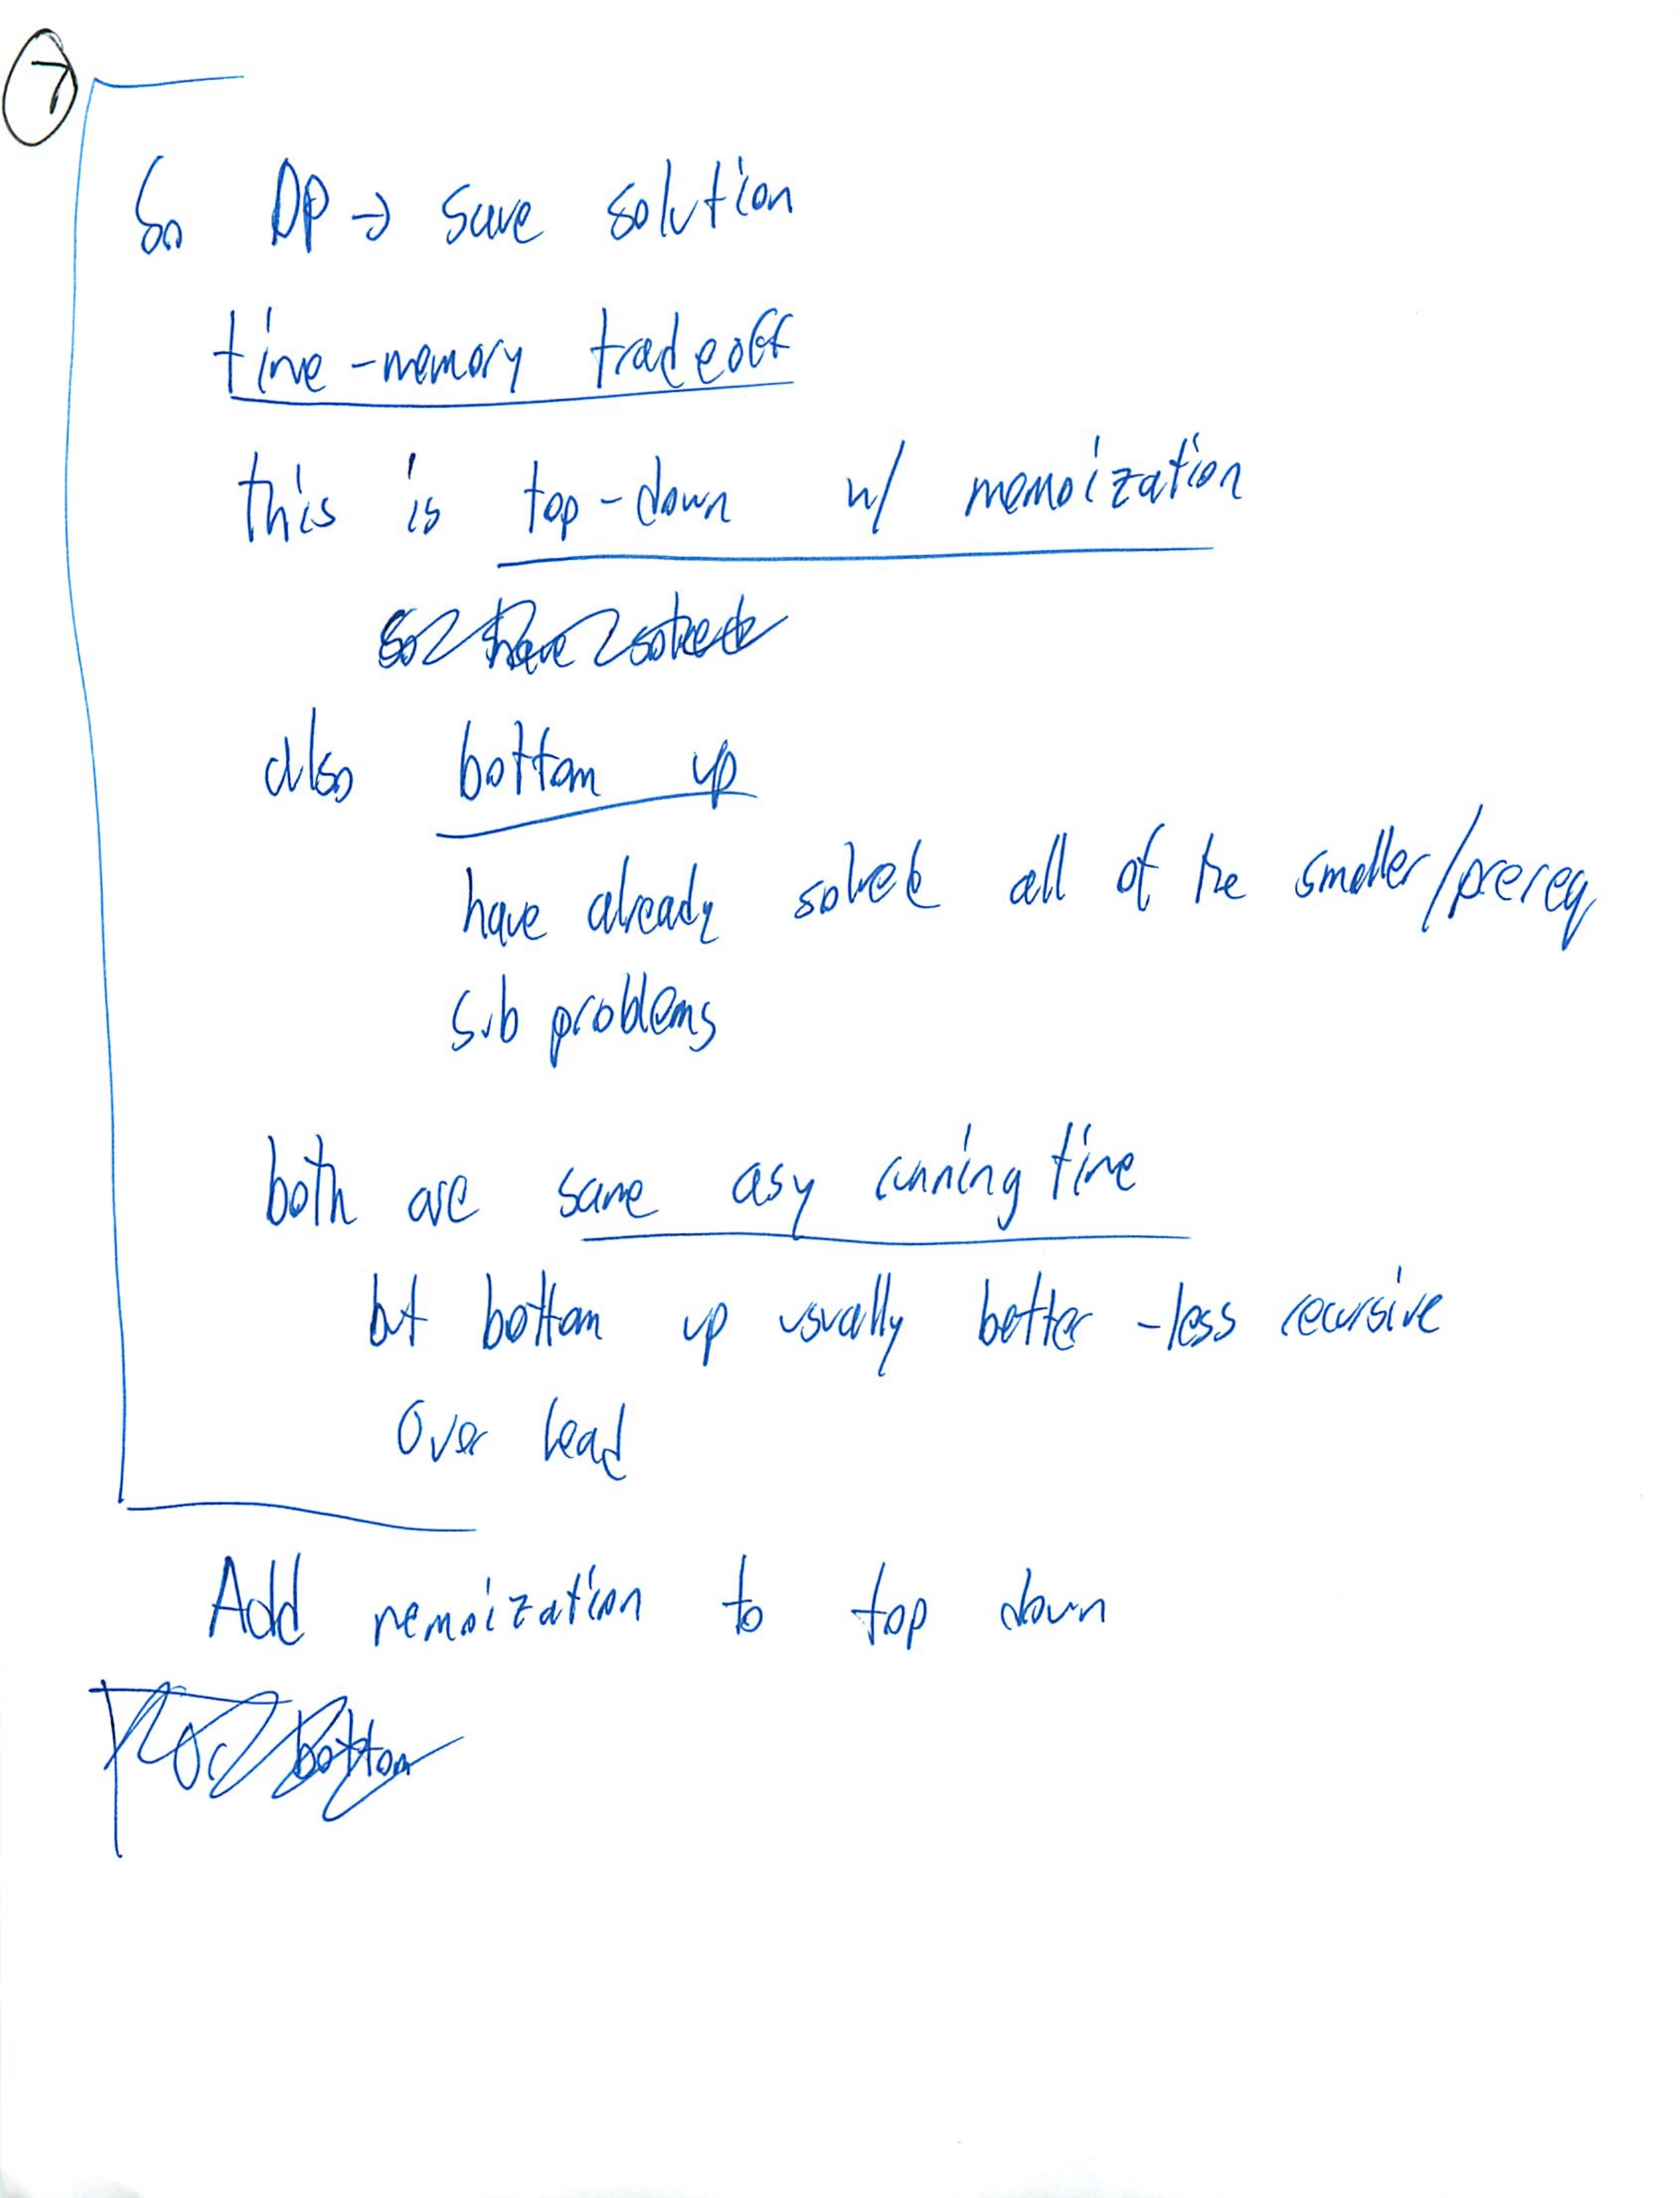 7
So DP → save solution
time-memory tradeoff
this is top-down w/ memoization
so have solved
also bottom up
have already solved all of the smaller/prereq
sub problems
both are same asy running time
but bottom up usually better - less recursive
over head
Add memoization to top down
bottom